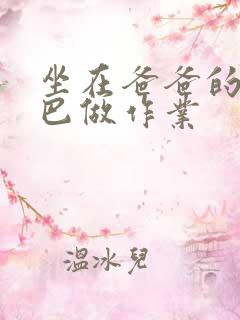 坐在爸爸的
巴做作業
溫冰兒